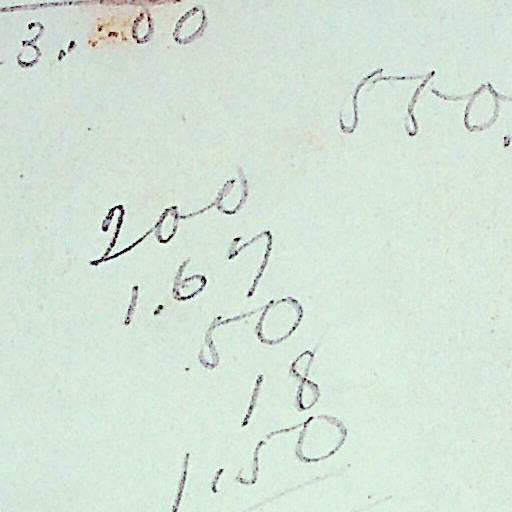 3.00
550.
200
1.67
.50
18
1.50